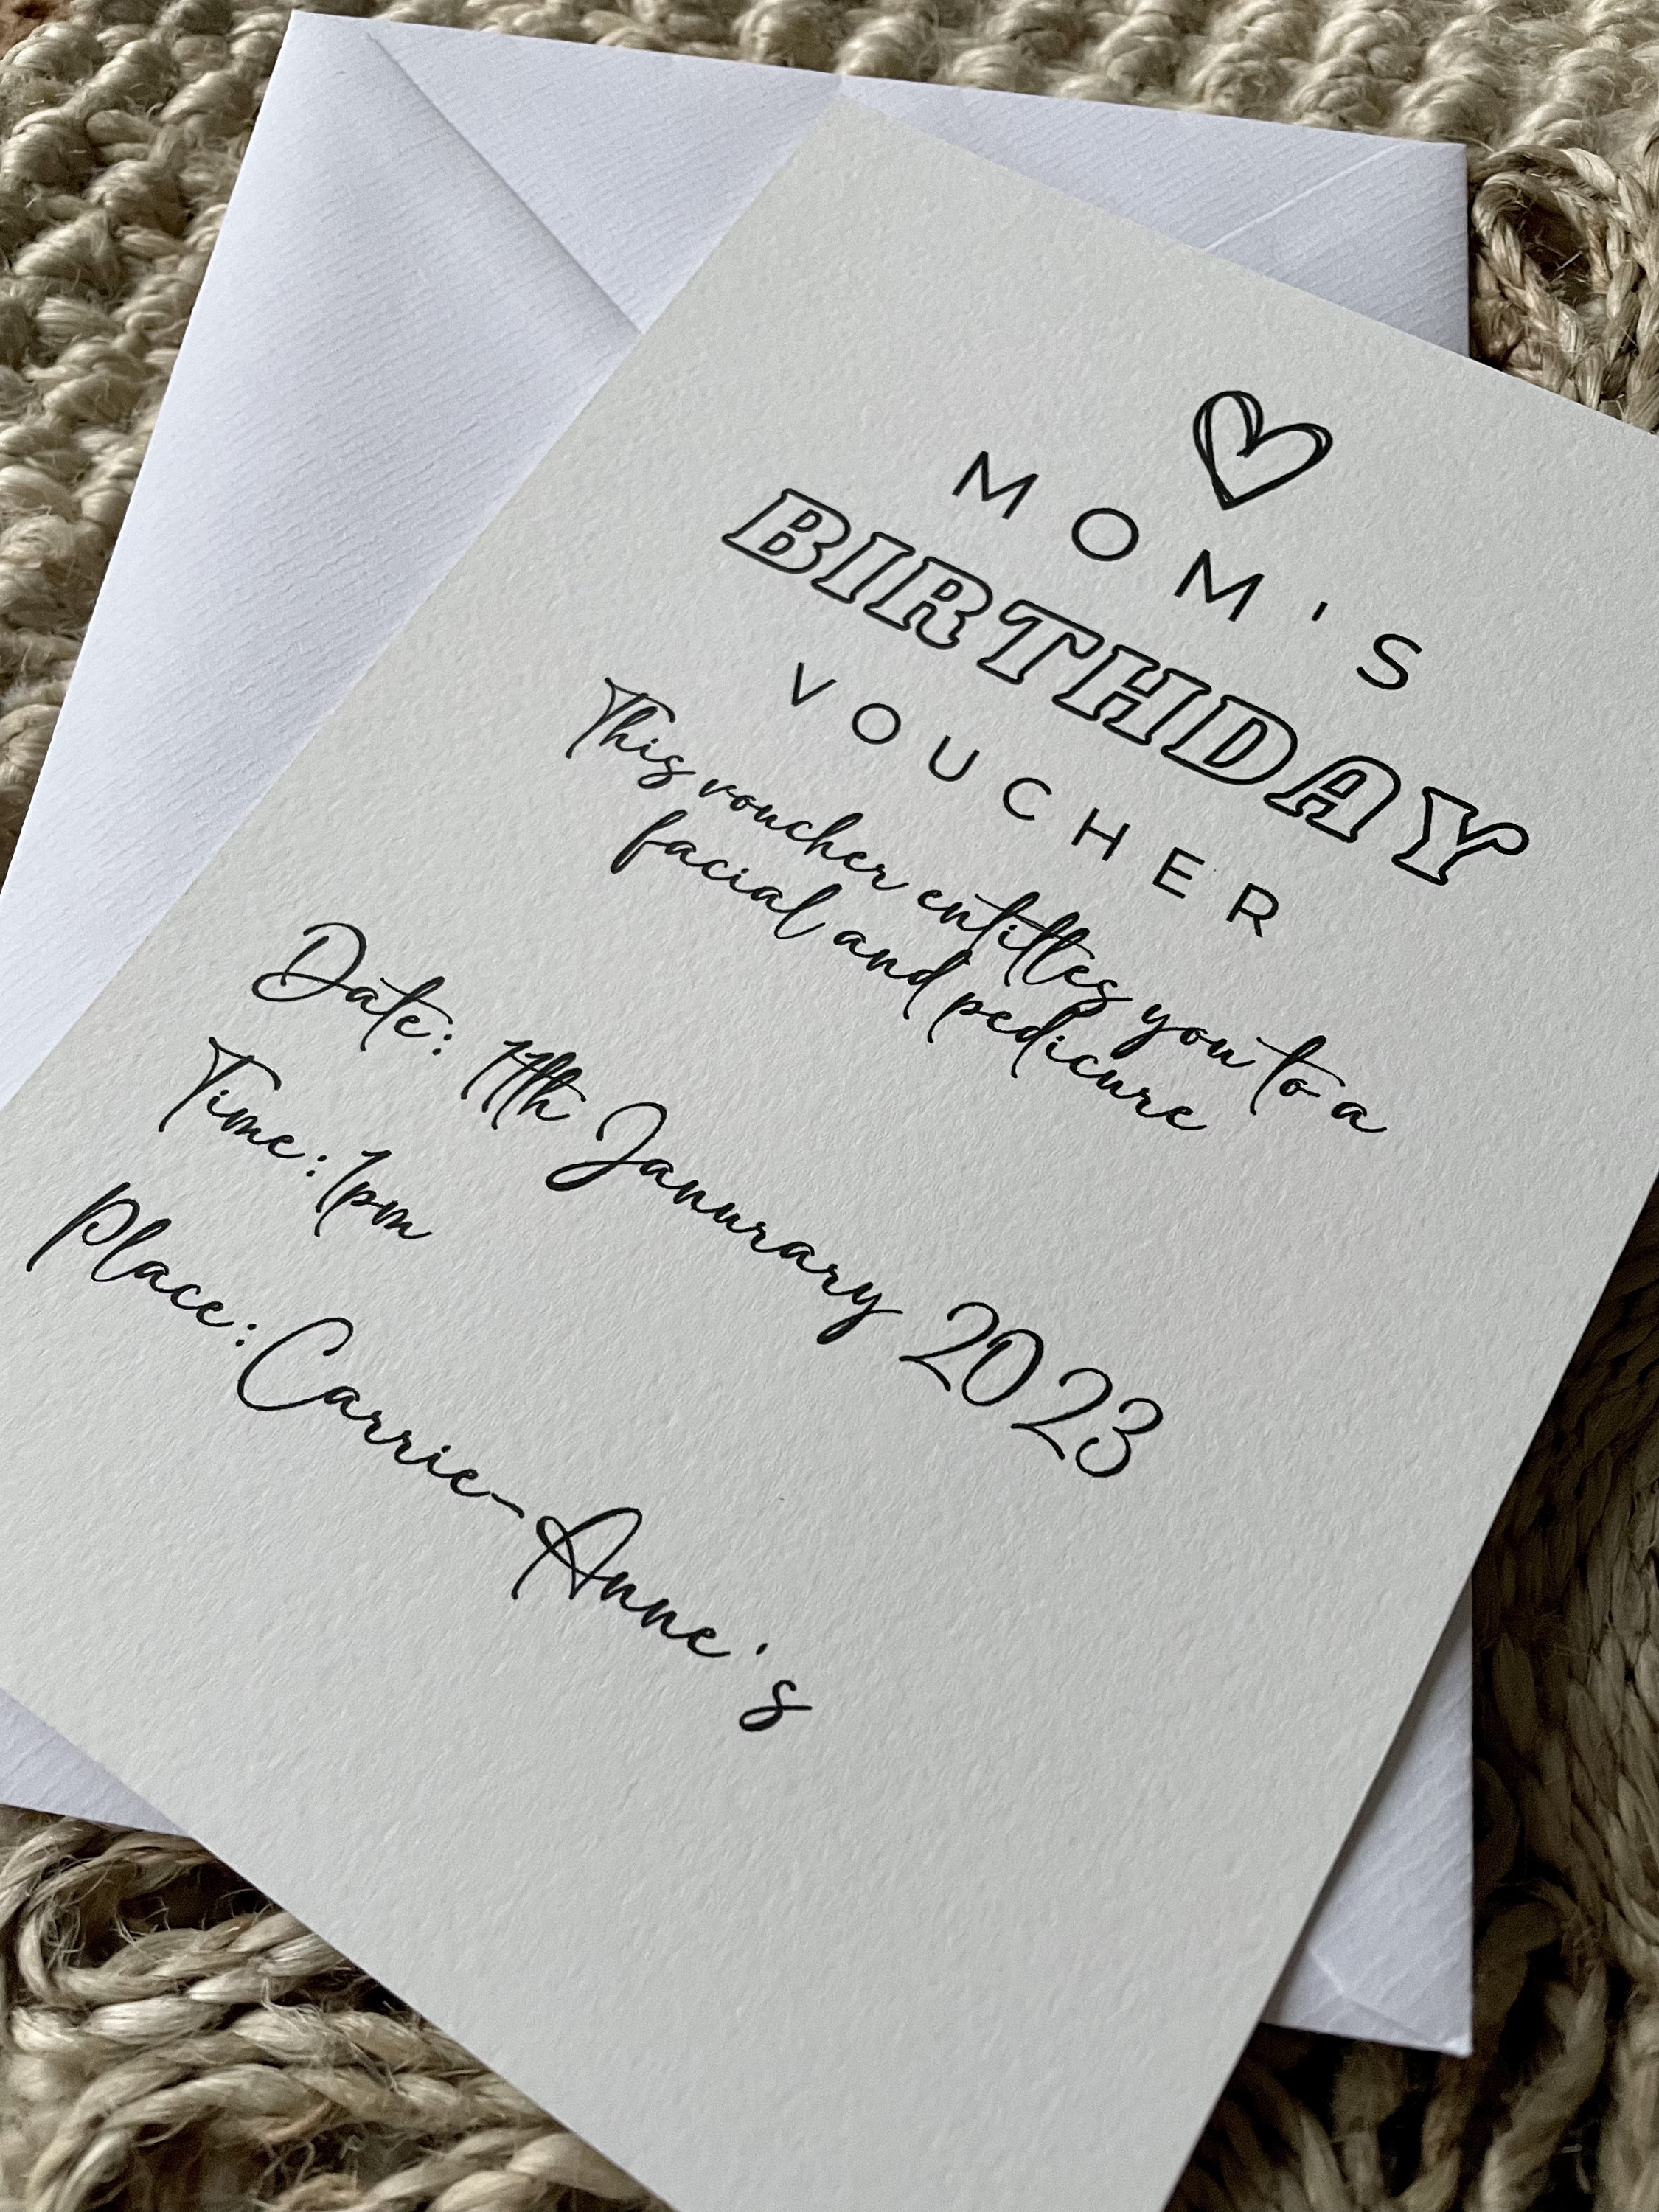 MOM'S
BIRTHDAY
VOUCHER
This voucher entitles you to a
facial and pedicure
Date: 11th Janurary 2023
Time: 1pm
Place: Carrie-Anne's